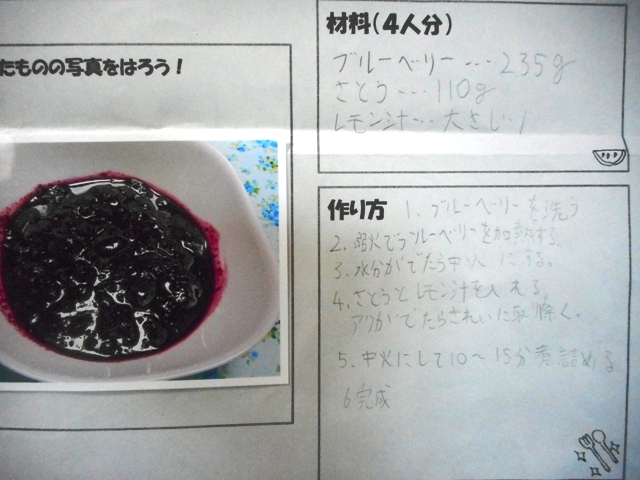 たものの写真をはろう！
材料(4人分)
ブルーベリー…235g
さとう…110g
レモン汁…大さじ1
作り方 1. ブルーベリーを洗う
2. 弱火でブルーベリーを加熱する
3. 水分がでたら中火にする。
4. さとうとレモン汁を入れる。
アクがでたらきれいに取り除く。
5. 中火にして10〜15分煮詰める
6 完成